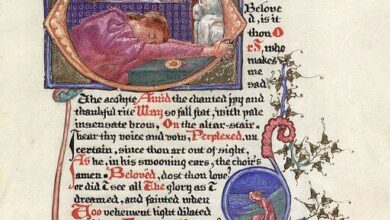 Belove
d, is it
thou O
r I, who
makes
me
mad
The acolyte Amid the chanted joy and
thankful rite May so fall flat, with pale
insensate brow, On the altar-stair.
hear thy voice and vow, Perplexed, un
certain, since thou art out of sight,
As he, in his swooning ears, the choir's
amen. Beloved, dost thou love?
or did I see all The glory as I
dreamed, and fainted when
Too vehement light dilated